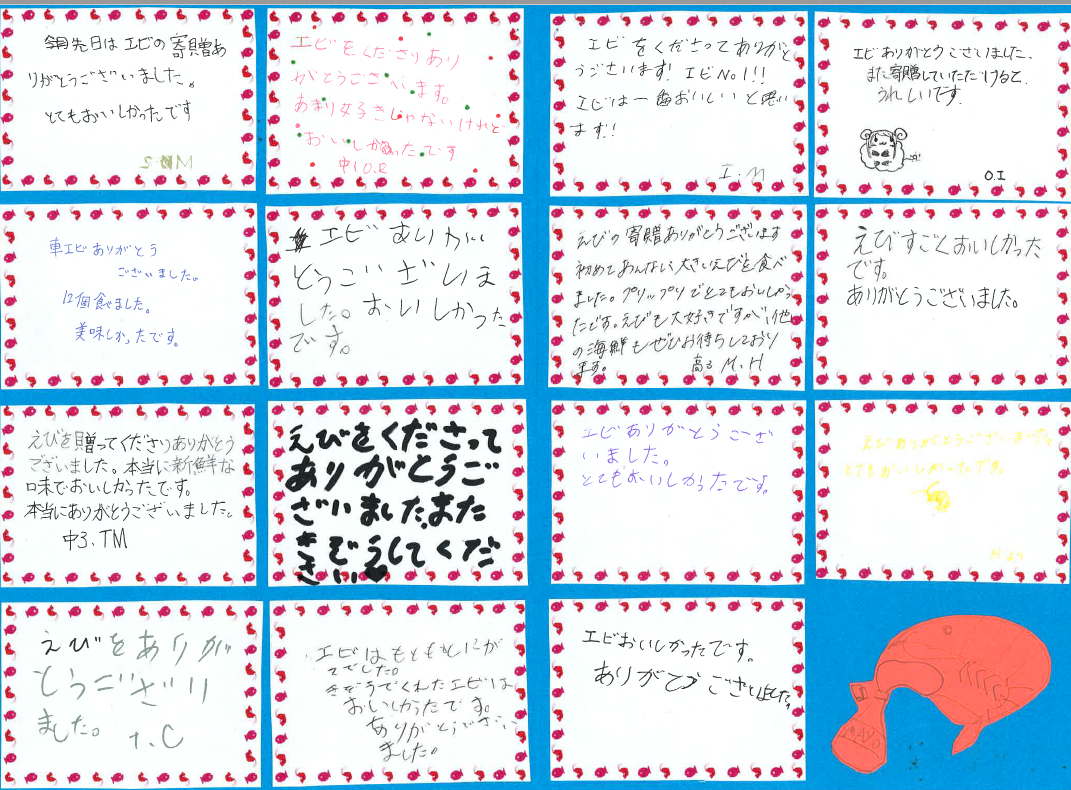 先日はエビの寄贈あ
りがとうございました。
とてもおいしかったです
エビをくださりあり
がとうございます。
あまり好きじゃないけれど
おいしかったです
中1 O.R
エビをくださってありがと
うございます! エビNo1!!
エビは一番おいしいと思い
ます!!
I.M
エビありがとうございました、
また寄贈していただけると、
うれしいです。
O.I
車エビありがとう
ございました。
12個食べました。
美味しかったです。
エビありが
とうございま
した。おいしかった
です。
えびの寄贈ありがとうございます
初めてあんない大きいえびを食べ
ました。プリップリでとてもおいしかっ
たです。えびも大好きですが、他
の海鮮もぜひお待ちしており
ます。 高3 M.H
えびすごくおいしかった
です。
ありがとうございました。
えびを贈ってくださりありがとう
ございました。本当に新鮮な
味でおいしかったです。
本当にありがとうございました。
中3.TM
えびをくださって
ありがとうご
ざいました、また
きぞうしてくだ
さい♥
エビありがとうござ
いました。
とてもおいしかったです。
えびありがとうございました。
とてもおいしかったです。
えびをありが
とうござい
ました。 T.C
エビはもともとにが
てでした。
きぞうでくれたエビは
おいしかったです。
ありがとうござい
ました。
エビおいしかったです。
ありがとうございました。
MAYO